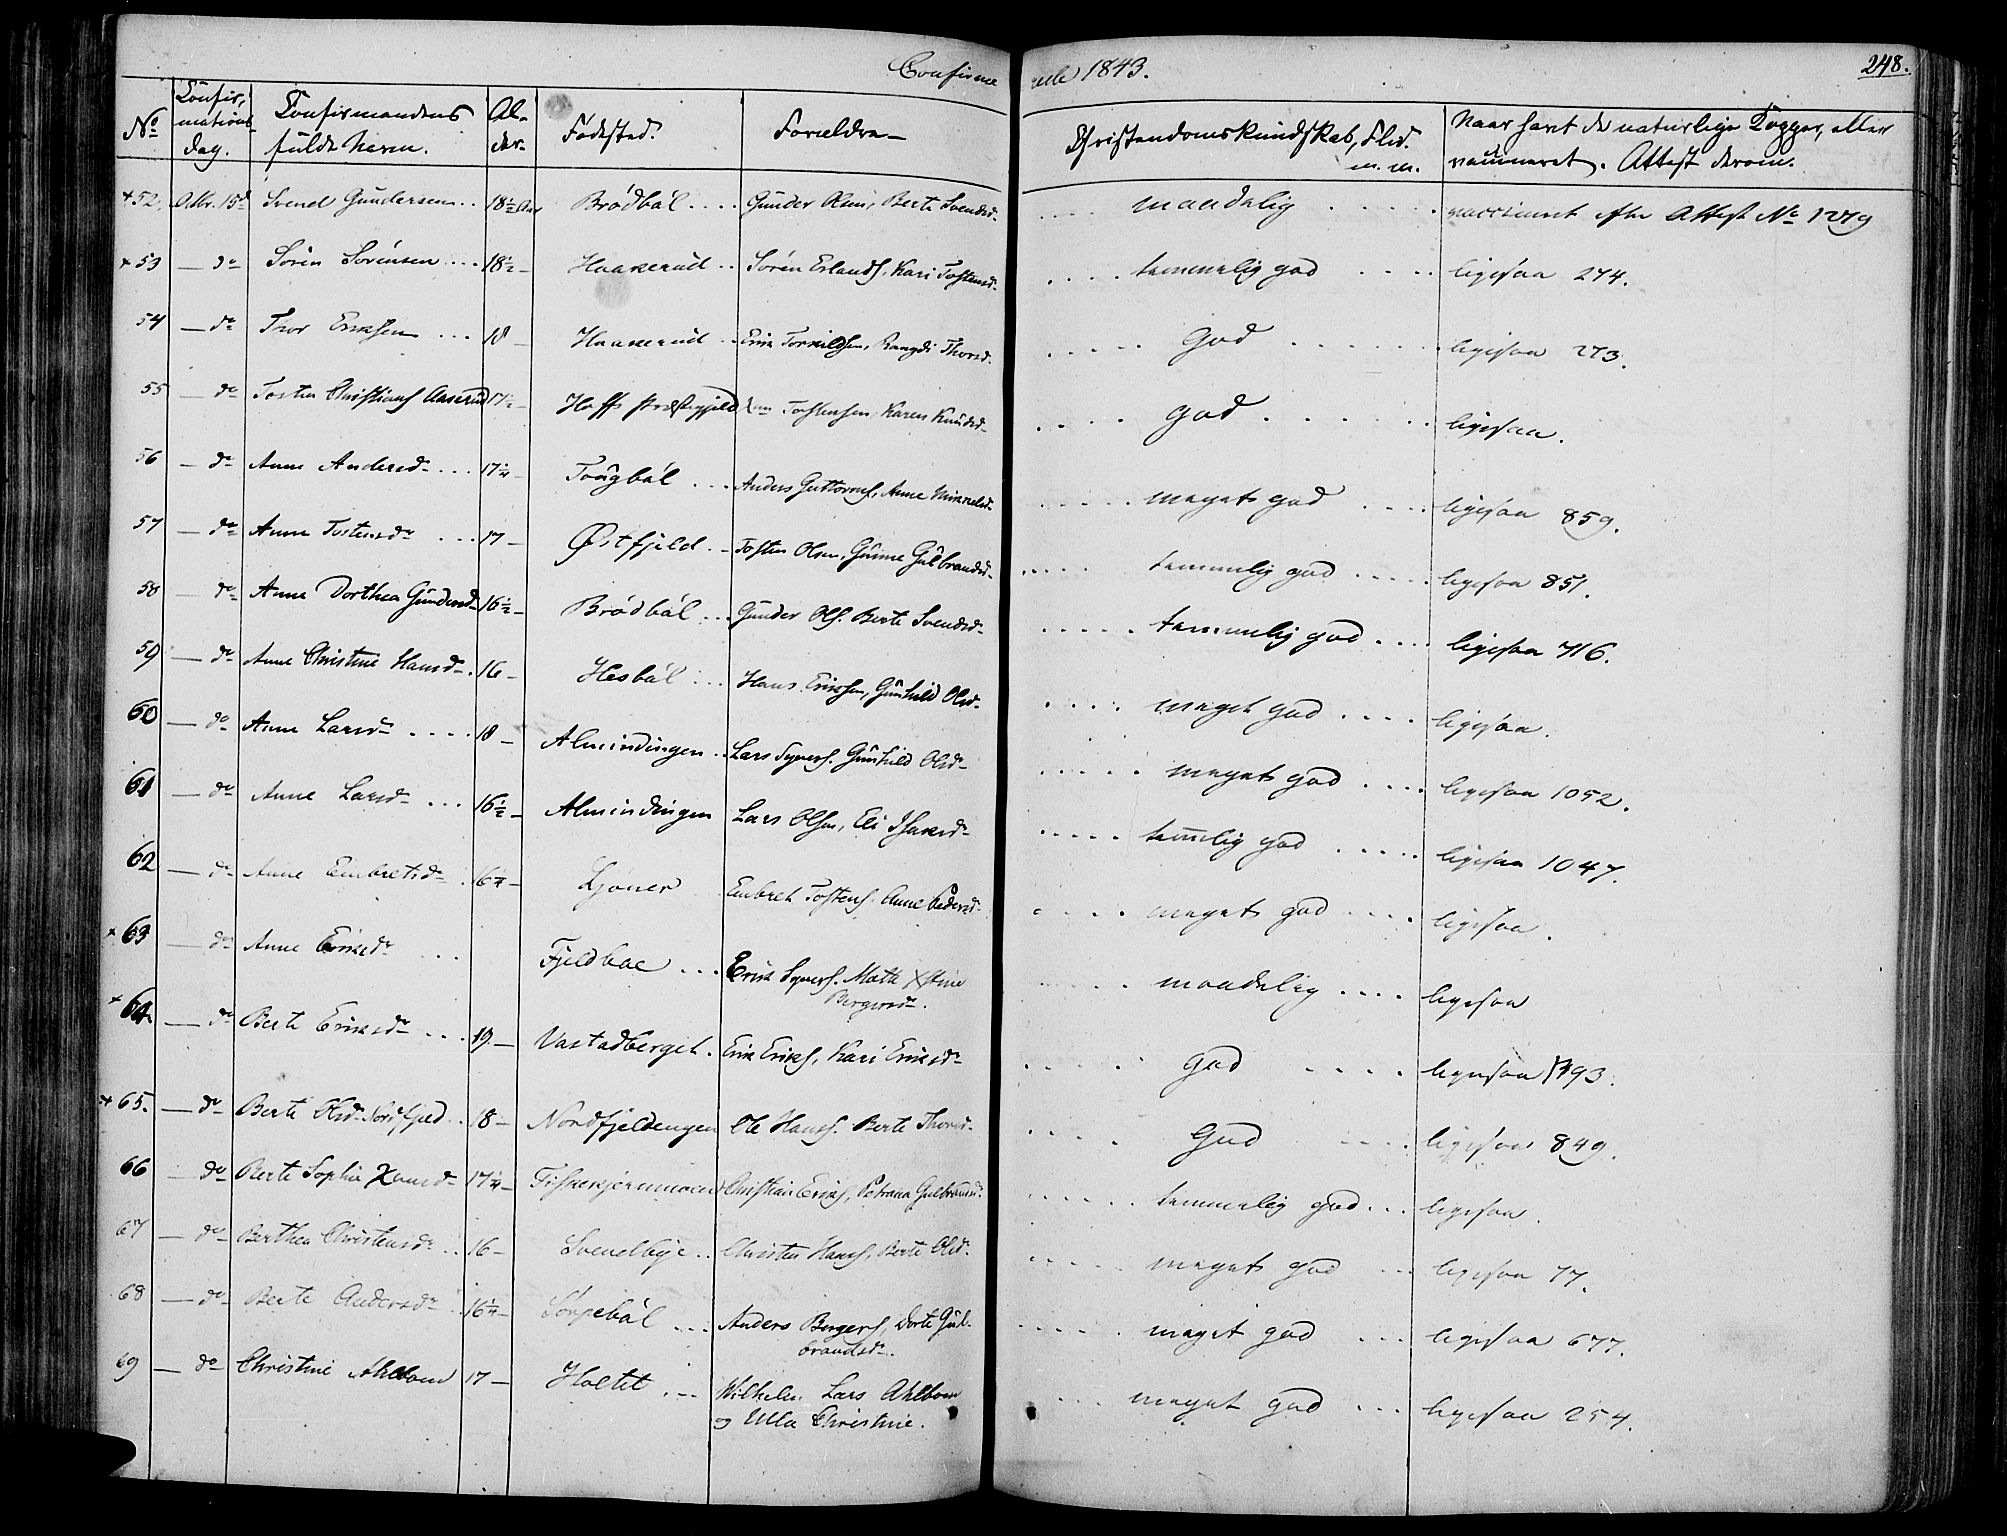 Confirmerede 1843.
248.
No
Confir,
mations
dag.
Confirmandens
fulde Navn.
Al-
der.
Fødested.
Forældre
Christendomskundskab, Flid.
m. m.
Naar havt de naturlige Kopper, eller
vaccineret. Attest derom.
+52, Octbr. 15d Svend Gundersen .. 18 1/2 Aar Brødbøl .... Gunder Olsen, Berte Svendsd. .... maadelig ..... vaccineret efter Attest No 1279
+53 — do Søren Sørensen .... 18 1/2 — Haakerud .. Søren Erlands, Kari Tostensd. .... temmelig god .... ligesaa 274.
54 — do Thor Eriksen ... 18 — Haakerud .. Erik Torkildsen, Rangdi Thorsd. ..... God ...... ligesaa 273.
55 — do Tosten Christians Aaserud 17 1/2 — Hoffs Præstegjeld Tostensen, Karen Knudsd. .... god ...... ligesaa.
56 — do Anne Andersd. ... 17 1/4 — Tougbøl ... Anders Guttorms, Anne Mikkelsd. ..... meget god .... ligesaa 859.
57 — do Anne Tostensd. ... 17 — Østfjeld .. Tosten Olsen, Gunne Gulbrandsd. ..... temmelig god ..... ligesaa 851.
58 — do Anne Dorthea Gundersd. 16 1/2 — Brødbøl ... Gunder Ols. Berte Svendsd. ..... temmelig god .... ligesaa 716.
59 — do Anne Christine Hansd. . 16 — Hesbøl ... Hans Eriksen, Gunhild Olsd. .... meget god .... ligesaa.
60 — do Anne Larsd. .... 18 — Almindingen .. Lars Syvers. Gunhild Olsd. ..... meget god .... ligesaa 1052.
61 — do Anne Larsd. ... 16 1/2 — Almindingen Lars Olsen, Eli Isaksd. ..... temelig god ..... ligesaa 1047.
62 — do Anne Embretsd. . 16 1/4 — Ljøner Embret Tostens. Anne Pedersd. .... meget god .... ligesaa.
+63 — do Anne Eriksd. ... Fjeldbae ... Erik Syvers. Mathe Xstine
Bergersd. ..... maadelig .... ligesaa
+64. — do Berte Eriksd. ... 19 — Vastadberget. Erik Eriks, Kari Eriksd. ..... God .... ligesaa 1193.
+65. — do Berte Olsd. Nordfjeld .. 18 — Nordfjeldengen Ole Hans. Berte Thorsd. ..... God .... ligesaa 849.
66 — do Berte Sophia Xansd. 17 1/4 — Christian Eriks, Petrana Gulbrandsd. ...... temmelig god ... ligesaa.
67 — do Berthea Christensd. .. 16 — Svenelbye .. Christen Hans, Berte Olsd. ..... meget god ... ligesaa 77.
68 — do Berte Andersd. .. 16 1/4 — Sørpebøl ... Anders Bergers, Dorte Gul-
brandsd. ..... meget god ... ligesaa 677.
69 — do Christine Ahlbom 17 — Holtet ... Wilhelm Lars Ahlbom
og Ulla Christine. ... meget god ... ligesaa 254.